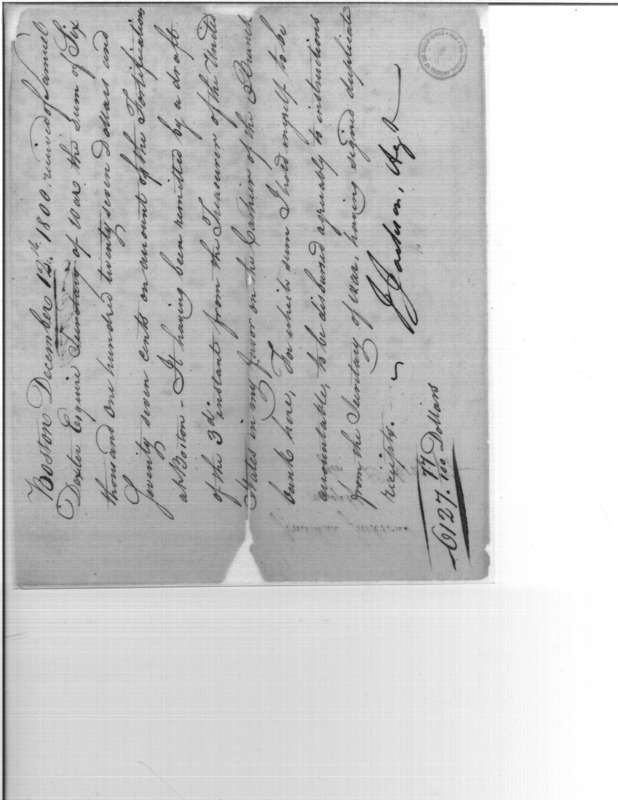 Boston December 12th. 1800. received of Samuel
Dexter Esquire Secretary of War the Sum of Six
thousand one hundred twenty seven Dollars and
Seventy seven cents on account of the Fortification
at Boston - It having been remitted by a draft
of the 3d. instant from the Treasurer of the United
States in my favor on the Cashier of the Branch
bank here, For which sum I hold myself to be
accountable, to be disbursed agreeably to instructions
from the Secretary of war, having signed duplicate
receipts. ~ J Jackson, Agt
6127. 77/100 Dollars